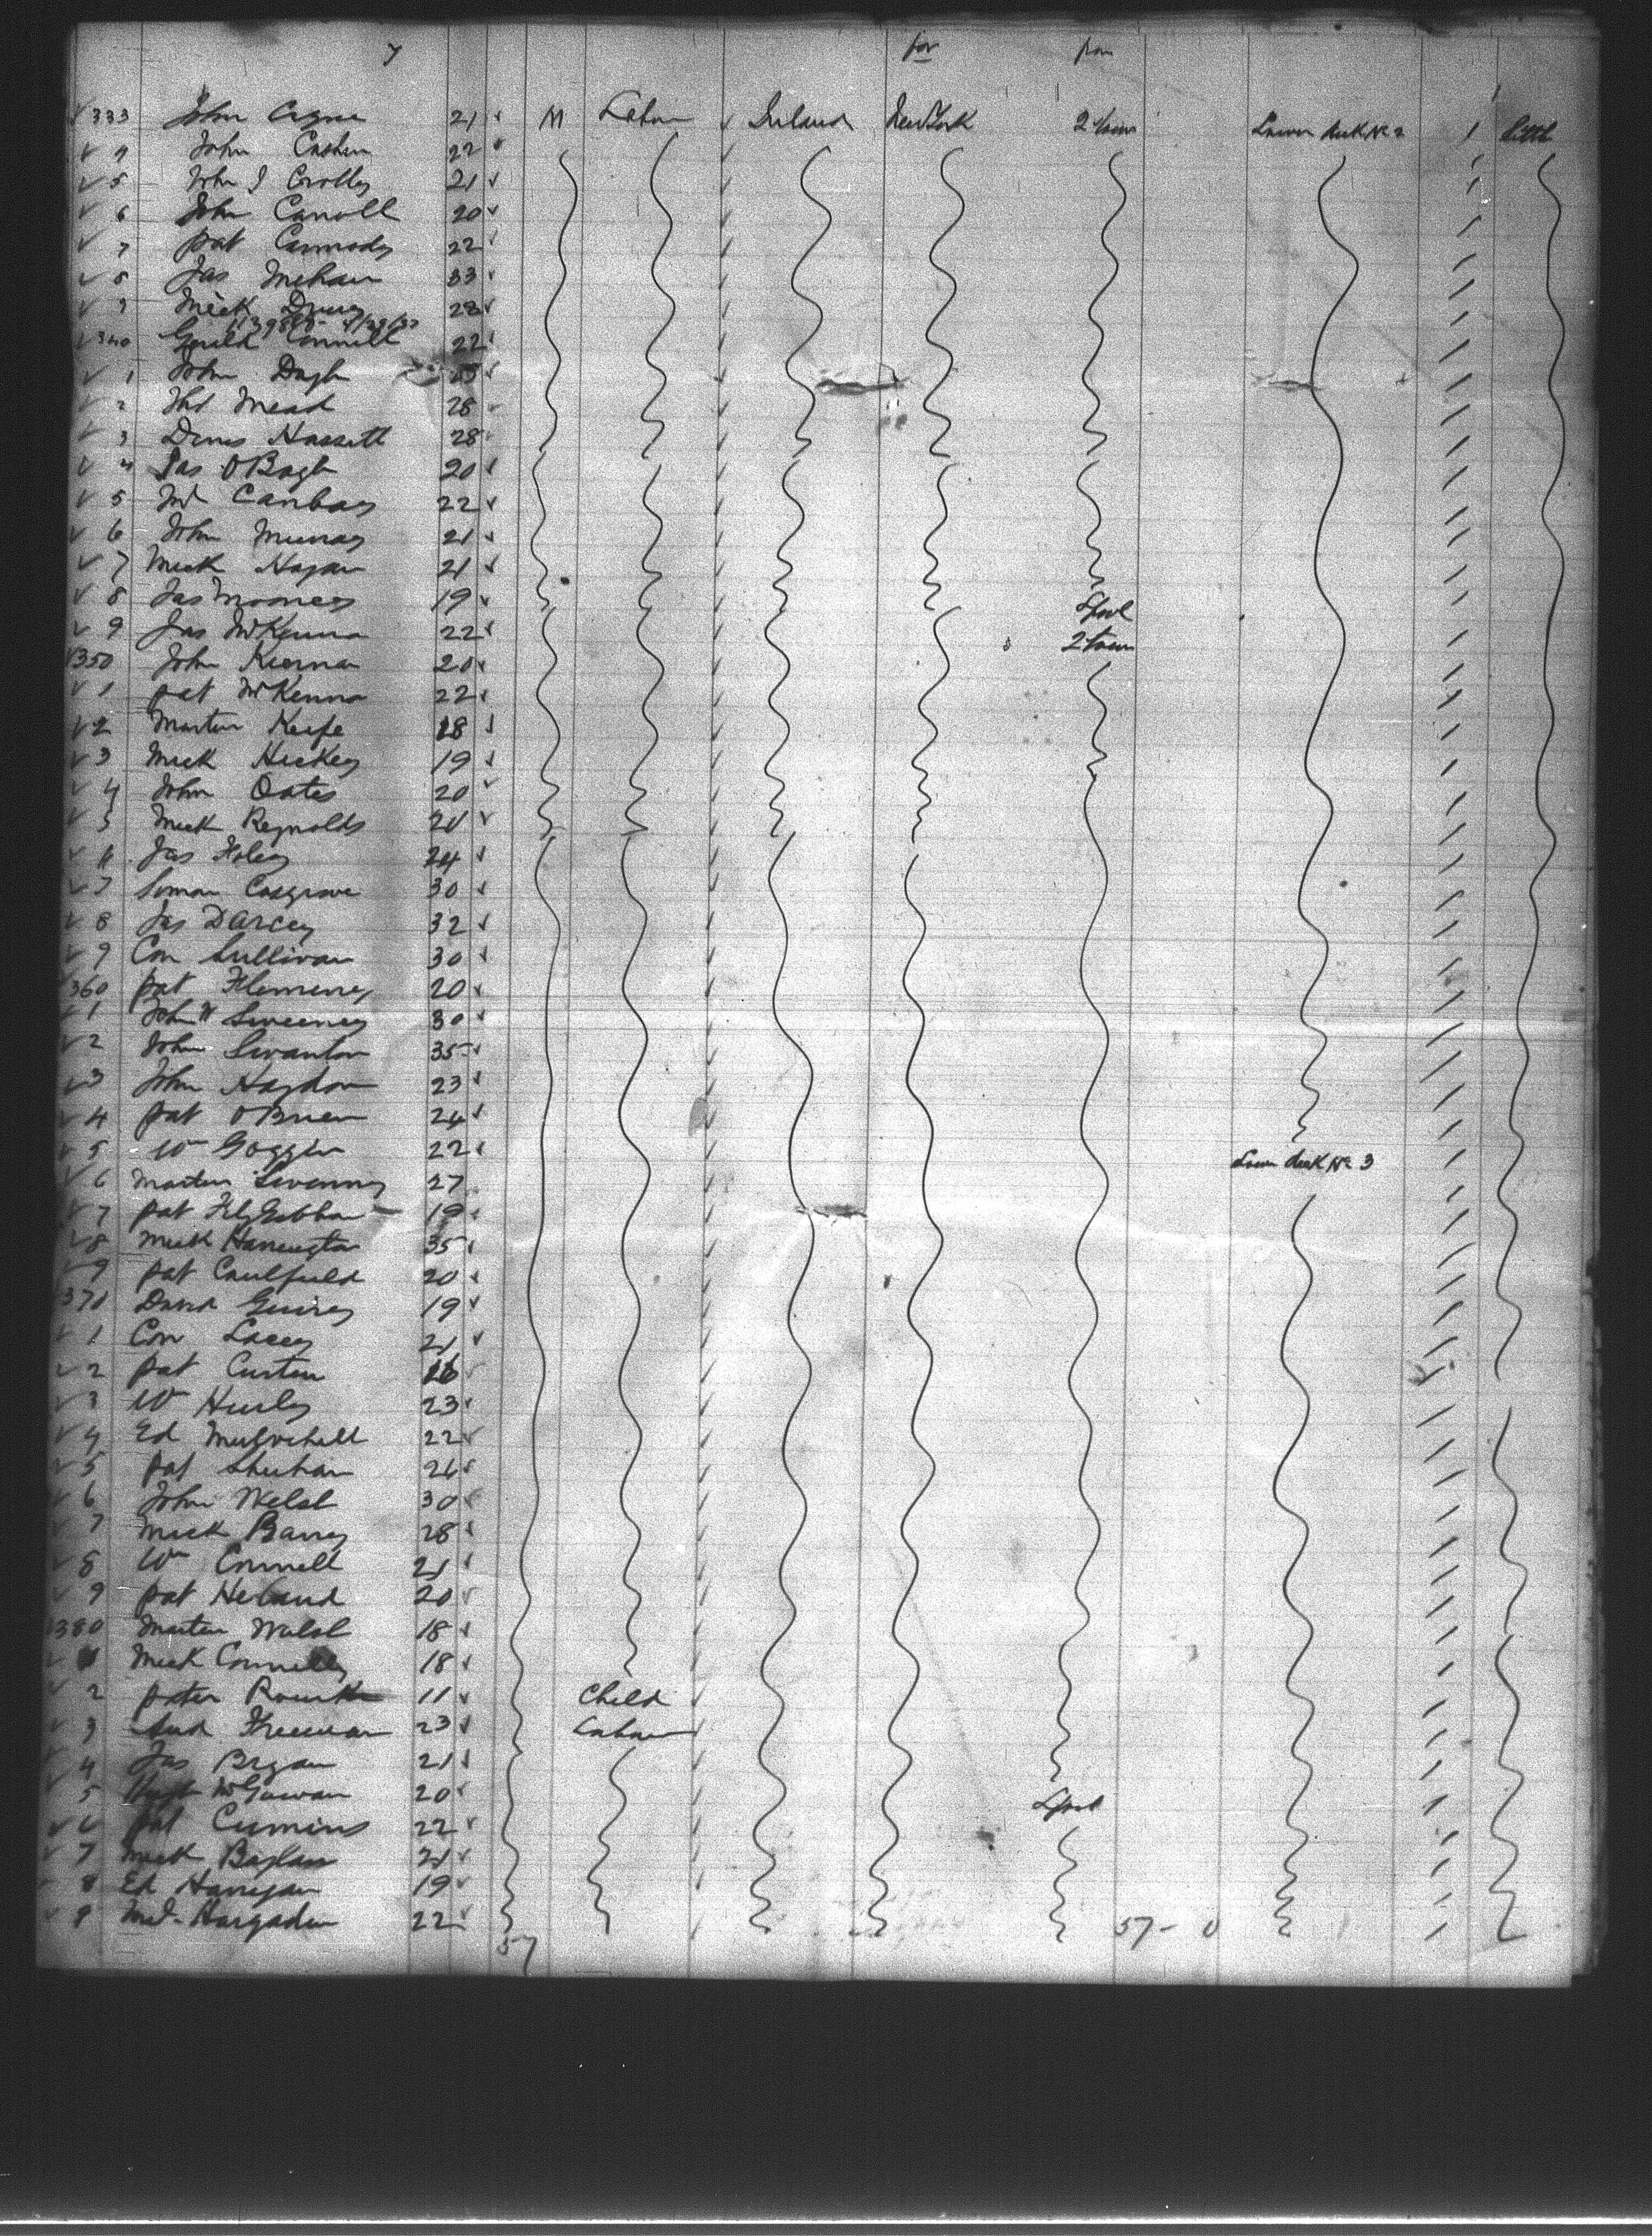 7 for from
333 John Coyne 21 M Labour Ireland New York 2 town Lower deck No 2 1 little
4 John Cashen 22
5 John J Crolly 21
6 John Carroll 20
7 Pat Carmody 22
8 Jas Mehan 33
9 Mick 22
340 Gerald Connell 22
1 John
2 Thos Mead 28
3 Denis Hassett 28
4 Jas O'Bogh 20
5 22
6 John Murray 21
7 Mick Hagan 21
8 Jas Mooney 19 Lpool
9 Jas McKenna 22 2 town
350 John Kiernan 20
1 Pat McKenna 22
2 Martin Keefe 18
3 Mick Hickey 19
4 John Oates 20
5 Mick Reynolds
6 Jas Foley 24
7 Simon Cosgrove 30
8 Jas Darcey 32
9 Con Sullivan 30
360 Pat Flemeney 20
1 John Sweeney 30
2 John Swanton 35
3 John Haydon 23
4 Pat O'Brien 24
5 Wm Goggin 22 Lower deck No 3
6 Martin Sweeney 27
7 Pat FitzGibbon 19
8 Mick Harrington 35
9 Pat Caulfield 20
370 David Guirey 19
1 Con Lacey 21
2 Pat Curtin
3 Wm Hurley 23
4 Ed Mulvehill 22
5 Pat Sheehan 26
6 John Welsh 30
7 Mick Barry 28
8 Wm Connell 21
9 Pat Heland 20
380 Martin Walsh 18
1 Mick Connelly 18
2 Peter Rourke 11 Child
3 Freeman 23 Labour
4 Jas Bryan 21
5 Hugh McGowan 20 Lpool
6 Pat Cumins 22
7 Mick Boylan 21
8 Ed Harrigan 19
9 Hargadin 22
57 57 - 0